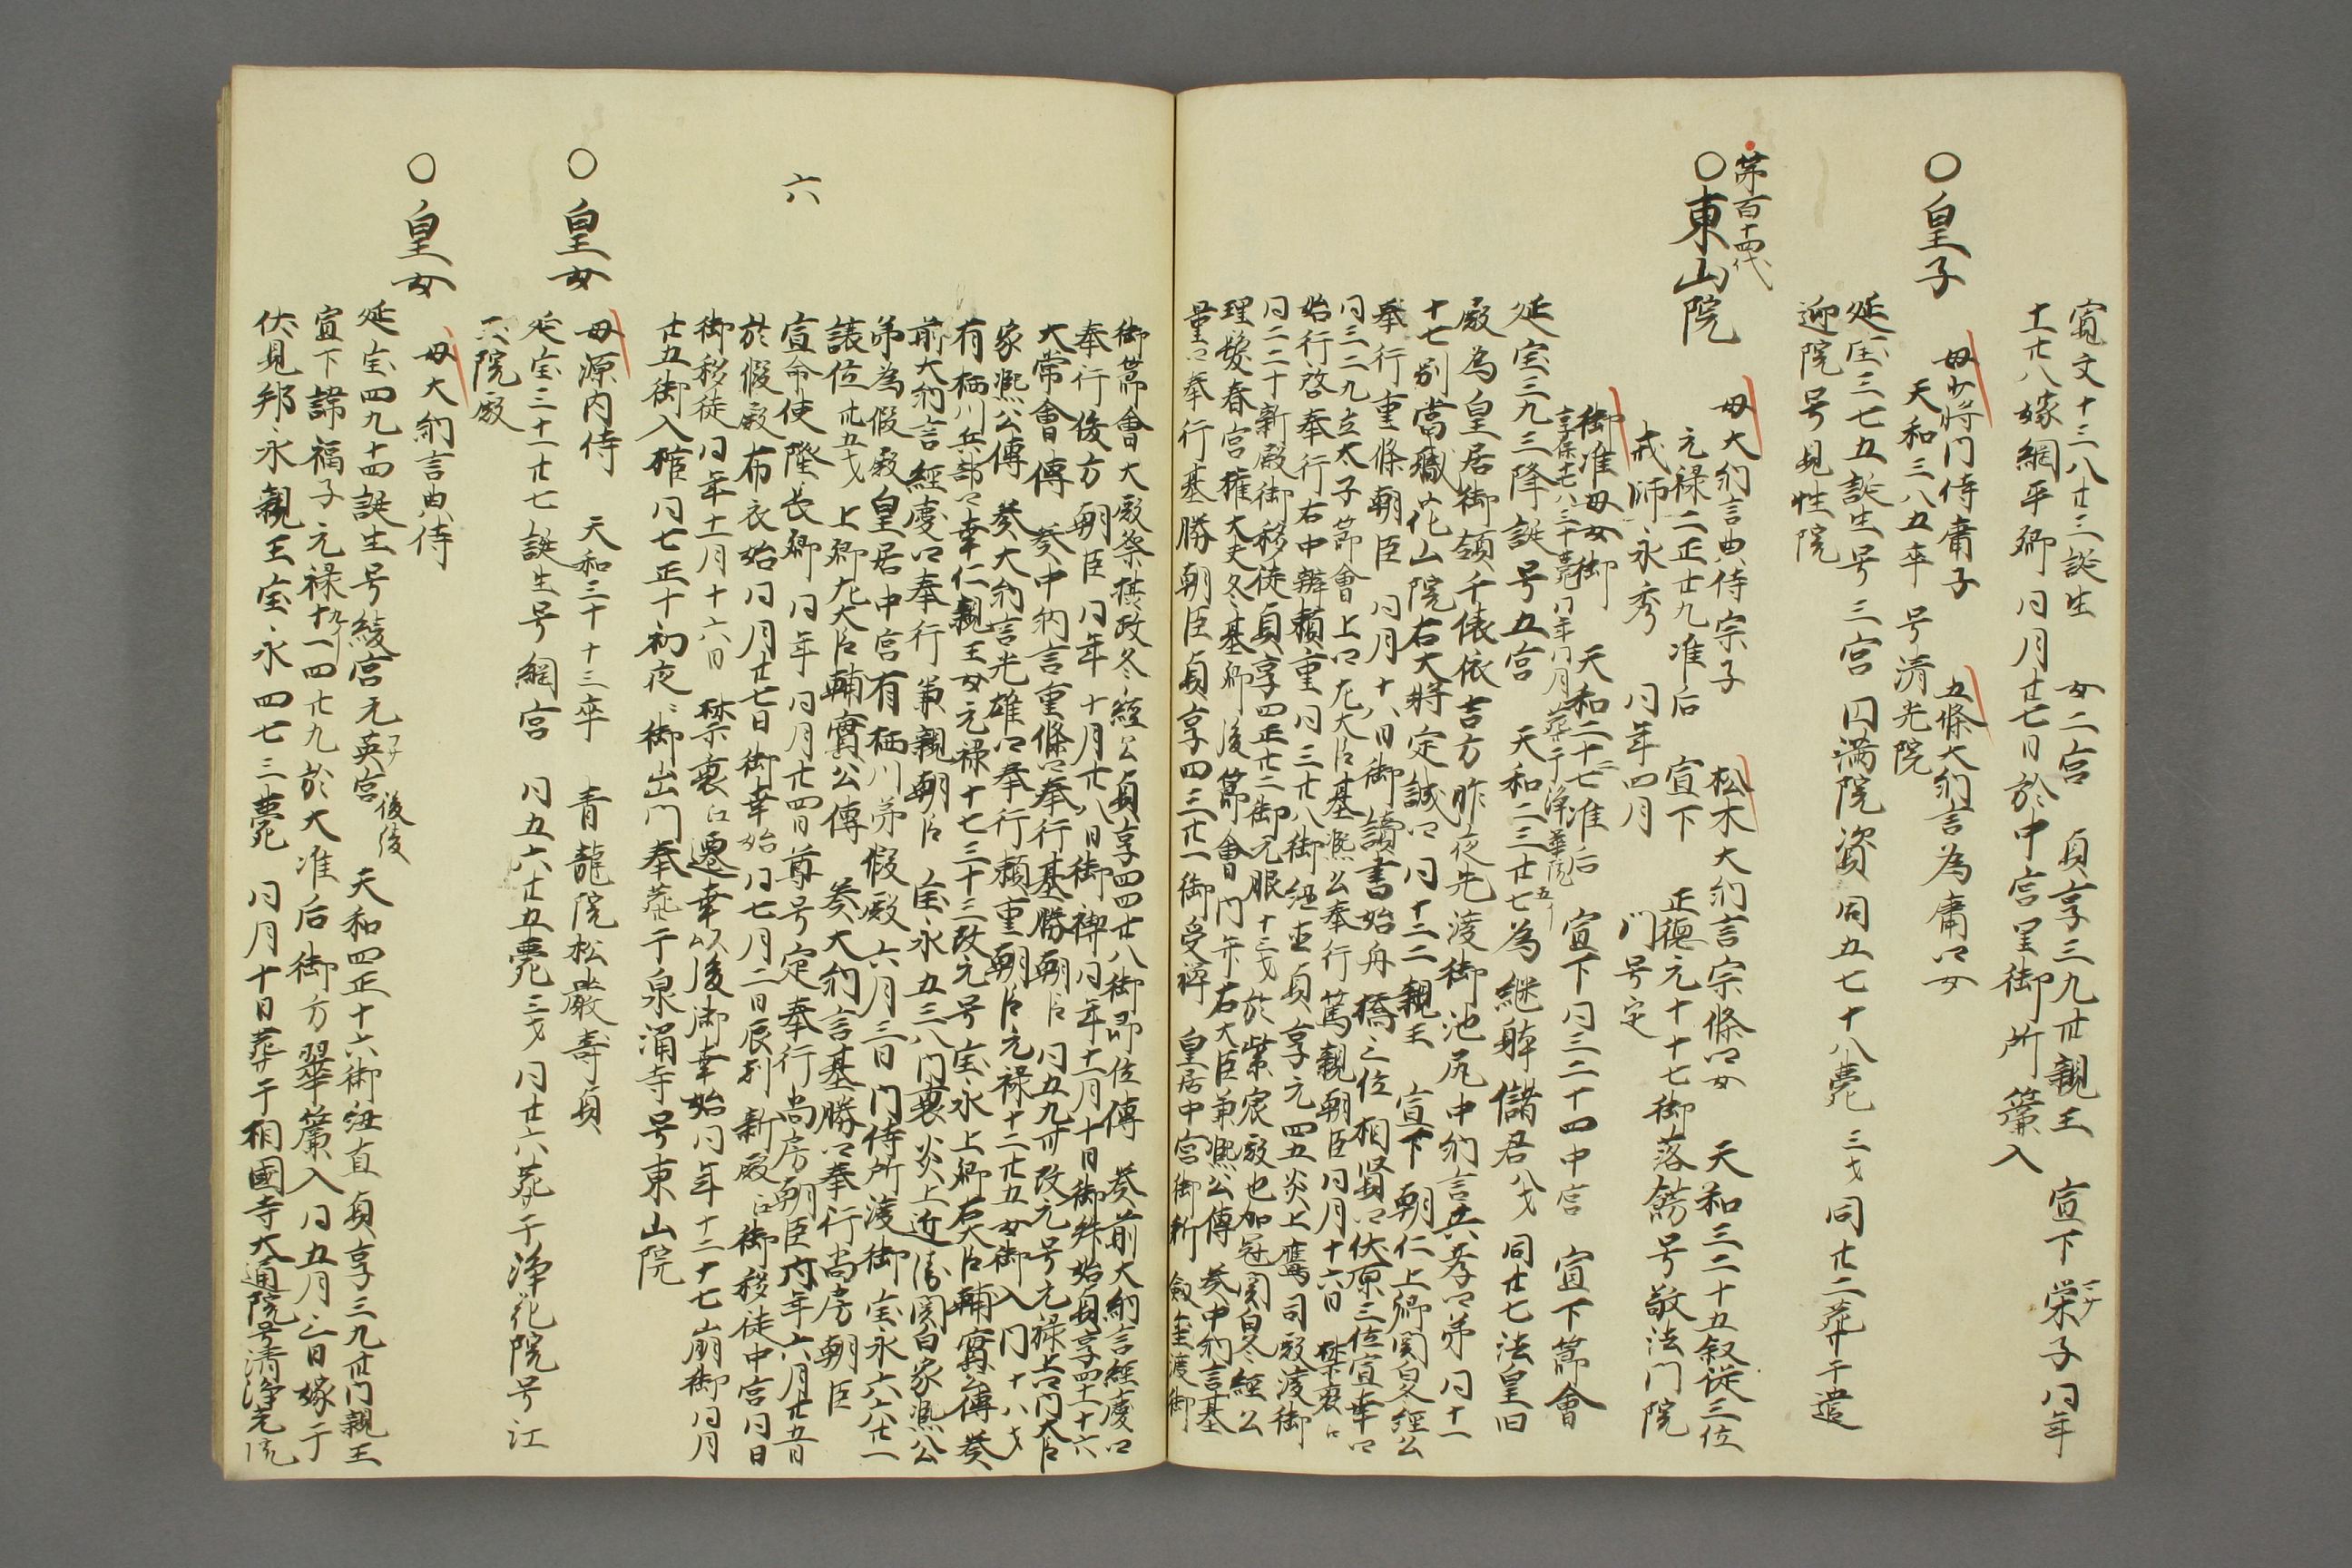 寛文十三八廿三誕生 女二宮 貞享三九廿親王 宣下 栄子 同年
十二廿八嫁綱平卿 同月廿七日於中宮里御所簾入
○皇子 母少将内侍庸子 五條大納言為庸卿女
天和三八五卒 号清光院
延宝三七五誕生号三宮 円満院資 同五七十八薨 三才 同廿二葬于遣
迎院号見性院
第百十四代
○東山院 母大納言典侍宗子 松木大納言宗條卿女 天和三二十五叙従三位
元禄二正廿九准后 宣下 正徳元十十七御落飾号敬法門院
戒師永秀 同年四月 門号定
御准母女御 天和二十二七准后 宣下 同三二十四中宮 宣下節會
延宝三九三降誕号五宮 天和二三廿七為継躰儲君 八才 同廿七法皇旧
殿為皇居御領千俵依吉方昨夜先渡御池尻中納言共孝卿第 同十一
十七別當職花山院右大将定誠卿 同十二二親王 宣下 朝仁上卿関白冬経公
奉行重條朝臣 同月十八日御讀書始舟橋三位相賢卿伏原三位宣幸卿
同三二九立太子節會上卿左大臣基熈公奉行篤親朝臣同月十六日 禁裏江
始行啓奉行右中辨頼重 同三廿八御紐直 貞享元四五炎上鷹司殿渡御
同二二十新殿御移徒貞享四正廿二御元服 十三才 於紫宸殿也加冠関白冬経公
理髪春宮権大夫冬基卿後節會内弁右大臣兼熈公傳奏中納言基
量卿奉行基勝朝臣貞享四三廿一御受禅 皇居中宮御新 劔璽渡御
御節會大殿祭摂政冬経公貞享四四廿八御即位傳 奏前大納言経慶卿
奉行俊方朝臣 同年十月廿八日御禊同年十一月十日御拜始貞享四十一十六
大嘗會傳 奏中納言重條卿奉行基勝朝臣 同五九卅改元号元禄上卿内大臣
家熈公傳 奏大納言光雄卿奉行頼重朝臣元禄十二廿五女御入内 十八才
有栖川兵部卿幸仁親王女元禄十七三十三改元号宝永上卿右大臣輔實公傳 奏
前大納言経慶卿奉行兼親朝臣 宝永五三八内裏炎上近衛関白家熈公
第為假殿皇居中宮有栖川第假殿 六月三日内侍所渡御 宝永六六廿一
譲位 卅五才 上卿左大臣輔實公傳 奏大納言基勝卿奉行尚房朝臣
宣命使隆長卿 同年 同月廿四日尊号定奉行尚房朝臣 同年六月廿五日
於假殿布衣始同月廿七日御幸始 同七月二日辰刻新殿江御移徒中宮同日
御移徒 同年十一月十六日 禁裏江遷幸以後御幸始同年十二十七崩御 同月
廿五御入棺 同七正十初夜御出門奉葬于泉涌寺号東山院
六
○皇女 母源内侍 天和三十十三卒 青龍院松巖壽貞
延宝三十一廿七誕生号綱宮 同五六廿五薨 三才 同廿六葬于浄花院号江
云院殿
○皇女 母大納言典侍
延宝四九十四誕生号綾宮元英宮 後綾 天和四正十六御紐直 貞享三九廿一内親王
宣下諱福子元禄十一四廿九於大准后御方翠簾入 同五月三日嫁于
伏見邦永親王宝永四七三薨 同月十日葬于相國寺大通院号清浄光院